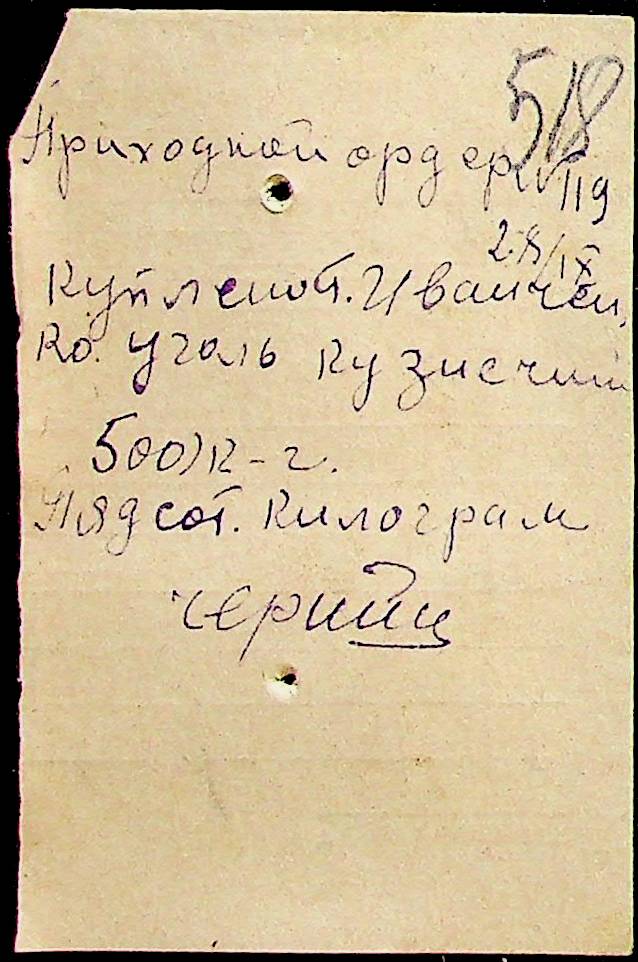 518
Приходной ордер № 119
28/IX
Куплено т. Иванчен,
ко. уголь кузнечий
500) к-г.
Пядсот. Килограм